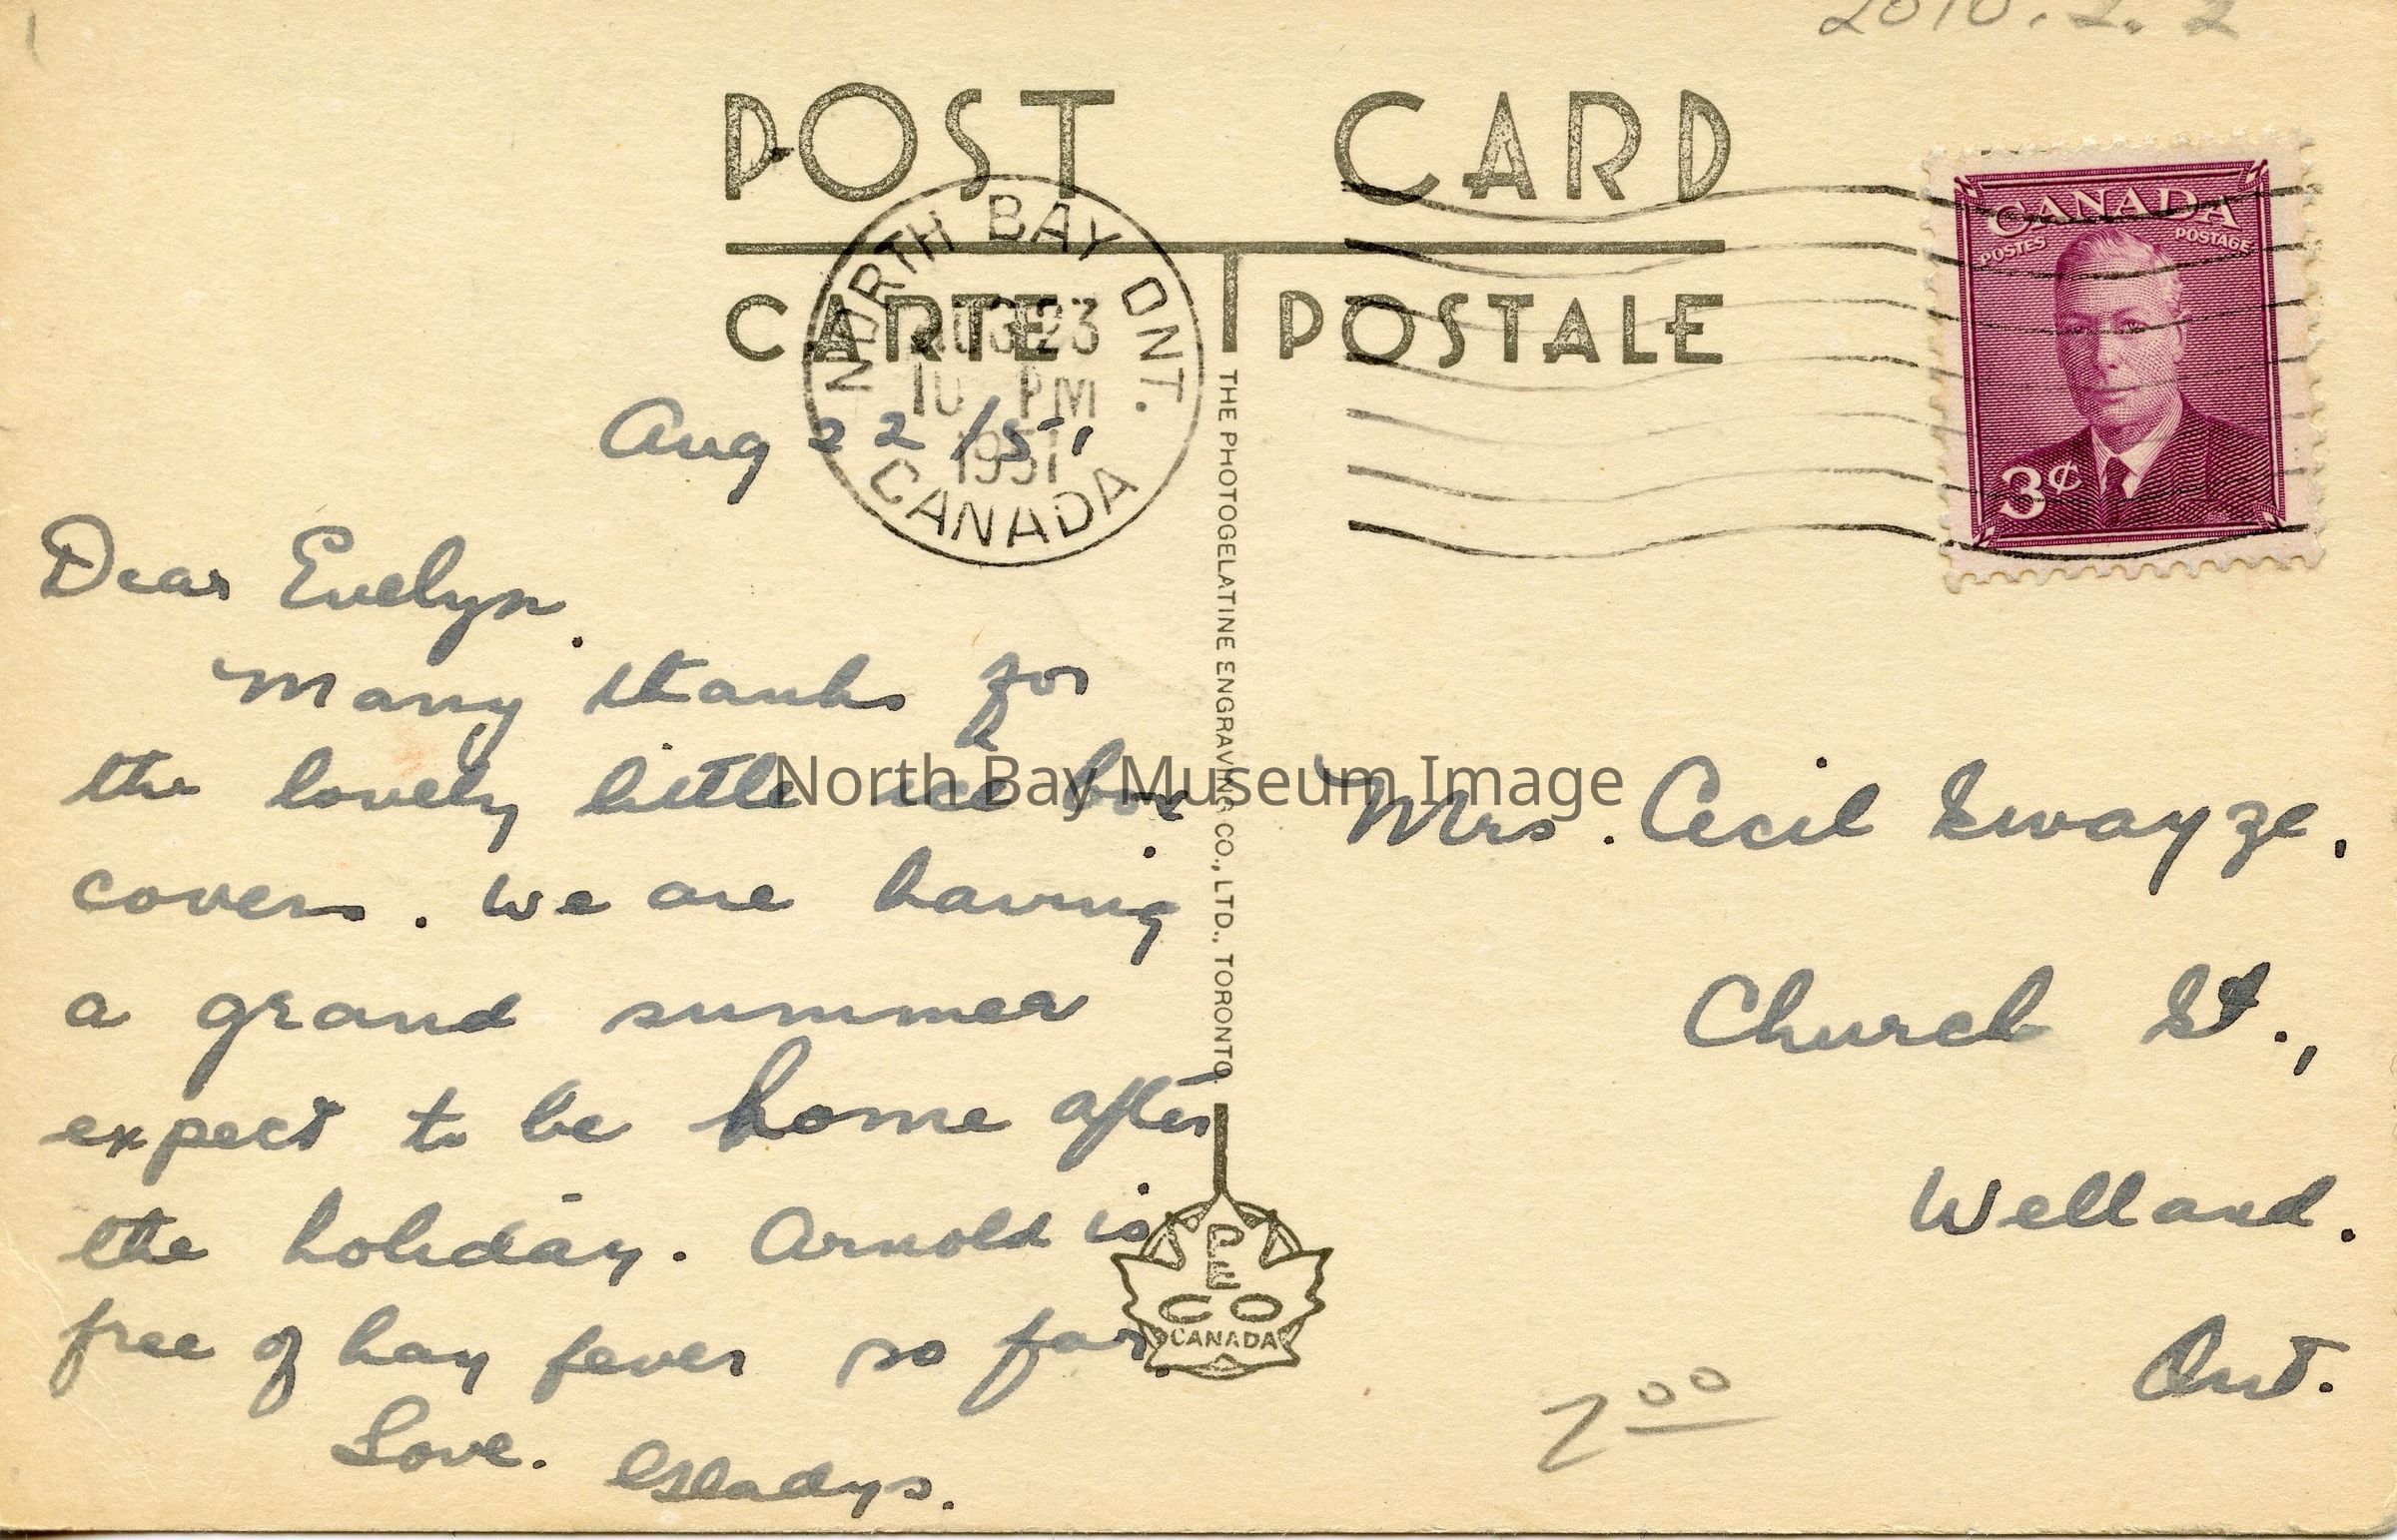 2010.2.2
POST CARD
CARTE POSTALE
CANADA
POSTES POSTAGE
3¢
NORTH BAY ONT.
AUG 23
10 PM
1951
CANADA
Aug 22/51
Dear Evelyn.
Many thanks for
the lovely little ice box
covers. We are having
a grand summer
expect to be home after
the holiday. Arnold is
free of hay fever so far.
Love. Gladys.
THE PHOTOGELATINE ENGRAVING CO., LTD., TORONTO.
PECO
CANADA
Mrs. Cecil Swayze,
Church St.,
Welland.
Ont.
2 00
North Bay Museum Image